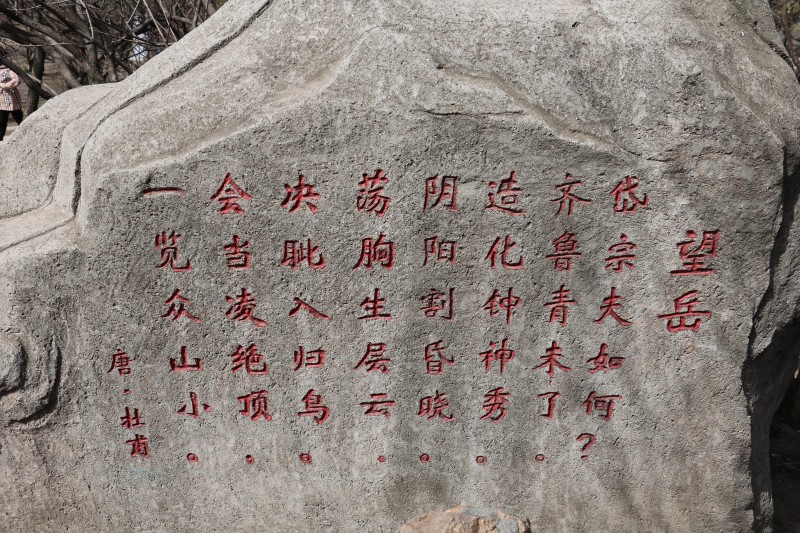 望岳
岱宗夫如何？
齐鲁青未了。
造化钟神秀。
阴阳割昏晓。
荡胸生层云。
决眦入归鸟。
会当凌绝顶。
一览众山小。
唐·杜甫